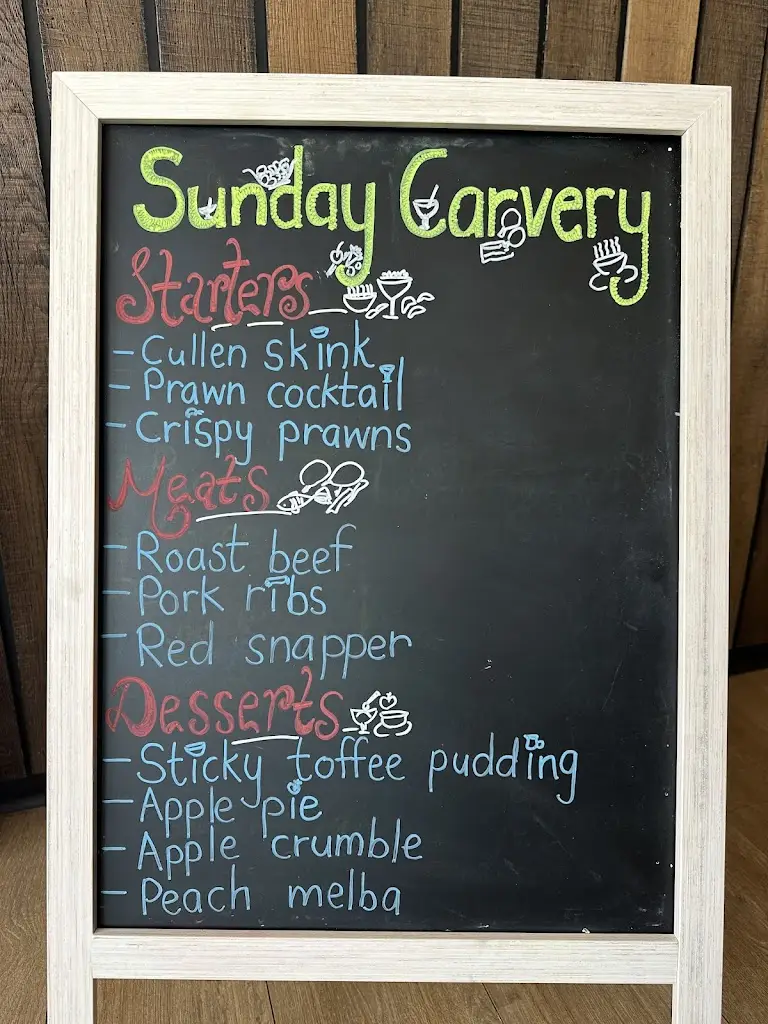 Sunday Carvery
Starters
- Cullen skink
- Prawn cocktail
- Crispy prawns
Meats
- Roast beef
- Pork ribs
- Red snapper
Desserts
- Sticky toffee pudding
- Apple pie
- Apple crumble
- Peach melba